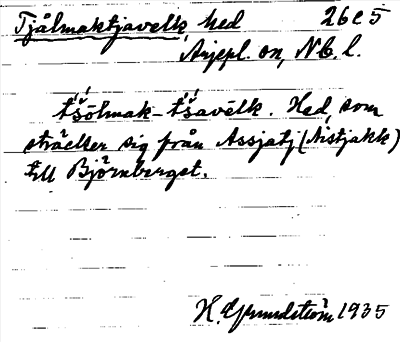 Tjålmaktjavelk, hed 26e5
Arjepl. sn, Nb. l.
tšōlmak-tšavēlk. Hed, som
sträcker sig från Assjatj (Aistjakk)
till Björnberget.
H. Grundström 1935